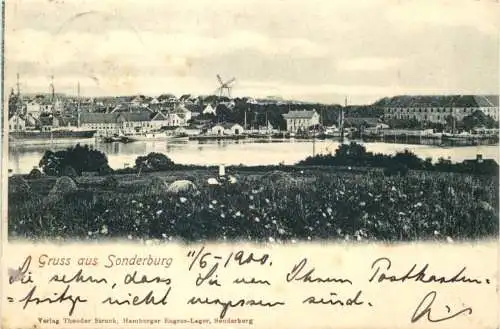 Gruss aus Sonderburg 11/6 - 1900.
Sie sehn, dass Sie von Ihrem Postkarten-
fritze nicht vergessen sind.
Verlag Theodor Struck, Hamburger Engros-Lager, Sonderburg